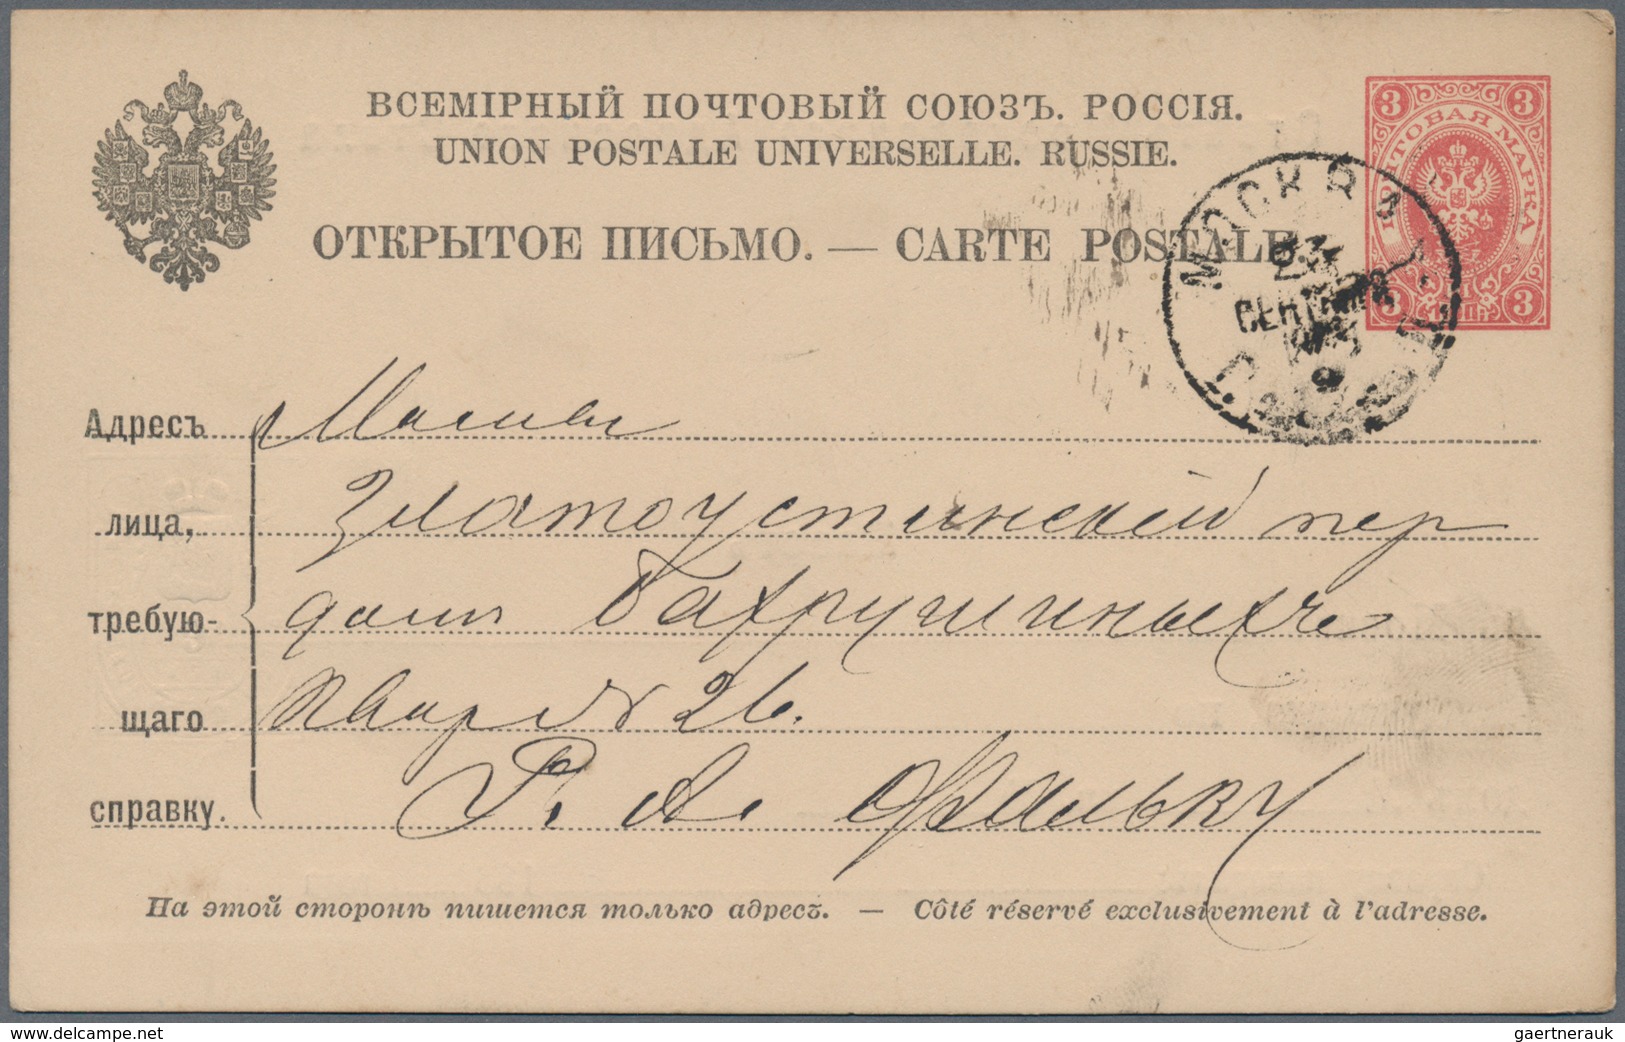 ВСЕМІРНЫЙ ПОЧТОВЫЙ СОЮЗЪ. РОССІЯ.
UNION POSTALE UNIVERSELLE. RUSSIE.
ОТКРЫТОЕ ПИСЬМО. — CARTE POSTALE.
3 3
ПОЧТОВАЯ МАРКА
3 3
МОСКВА
СЕНТЯБРЯ
Адресъ
лица, Златоустинскій пер
требую- домъ Бахрушиныхъ
щаго Квар № 26.
справку. Фальку
На этой сторонѣ пишется только адресъ. — Côté réservé exclusivement à l'adresse.
www.delcampe.net
gaertnerauk